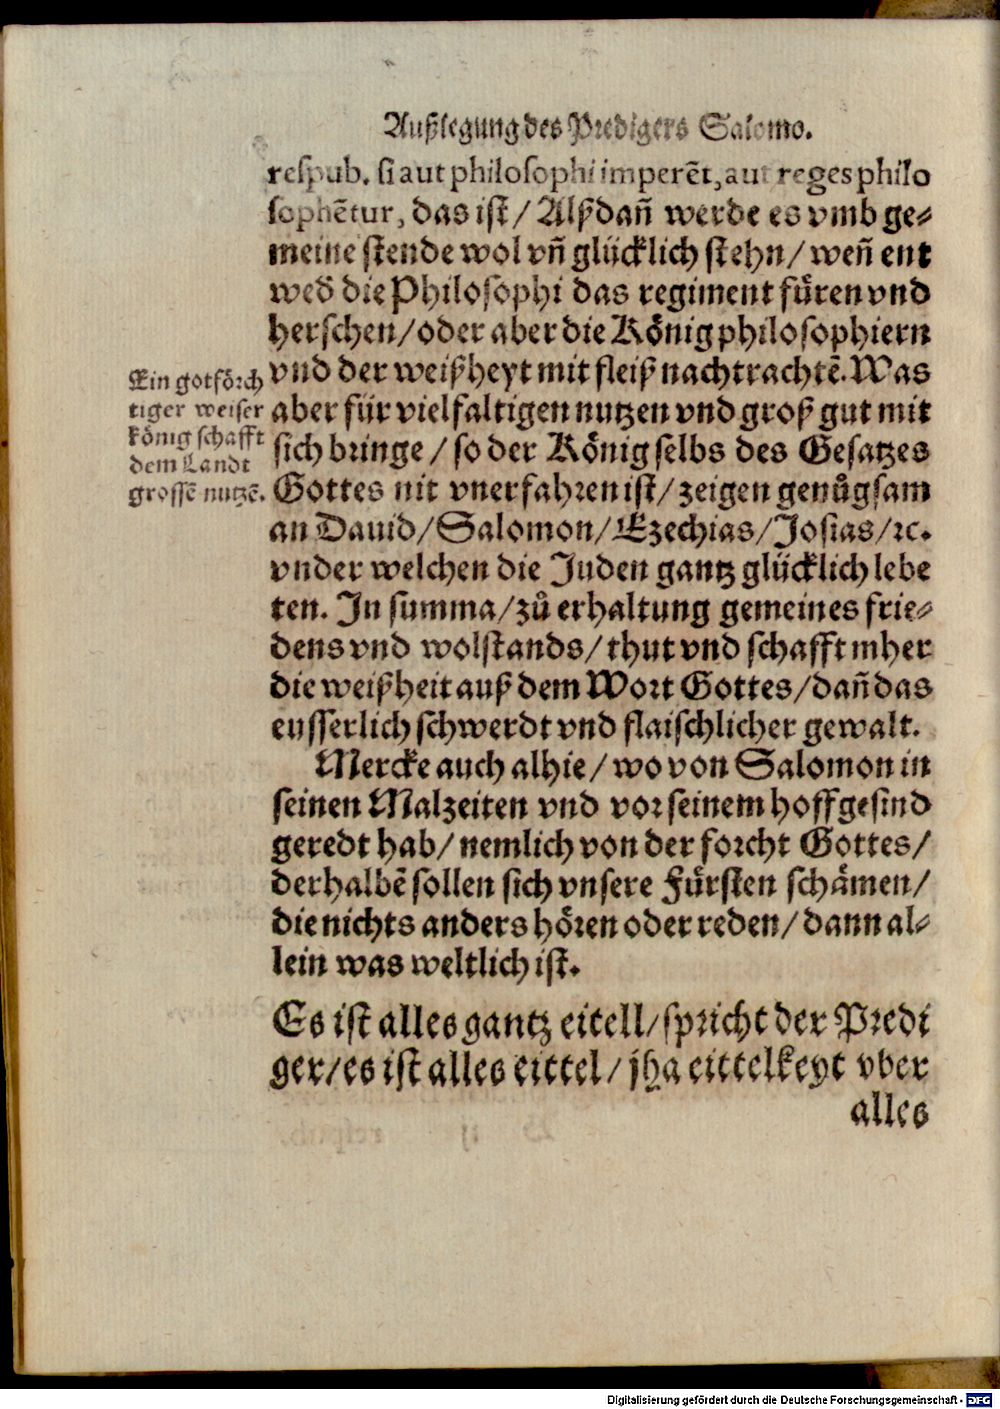 Außlegung des Predigers Salomo.
respub. si aut philosophi imperēt, aut reges philo
sophētur, das ist / Alßdañ werde es vmb ge⸗
meine stende wol vñ glücklich stehn / weñ ent
wed̄ die Philosophi das regiment füren vnd
herschen / oder aber die König philosophiern
vnd der weißheyt mit fleiß nachtrachtē. Was
aber für vielfaltigen nutzen vnd groß gut mit
sich bringe / so der König selbs des Gesatzes
Gottes nit vnerfahren ist / zeigen genůgsam
an Dauid / Salomon / Ezechias / Josias / ꝛc.
vnder welchen die Juden gantz glücklich lebe
ten. In summa / zů erhaltung gemeines frie⸗
dens vnd wolstands / thut vnd schafft mher
die weißheit auß dem Wort Gottes / dañ das
eusserlich schwerdt vnd flaischlicher gewalt.
Ein gotförch
tiger weiser
könig schafft
dem Landt
grossē nutzē.
Mercke auch alhie / wo von Salomon in
seinen Malzeiten vnd vor seinem hoffgesind
geredt hab / nemlich von der forcht Gottes /
derhalbē sollen sich vnsere Fürsten schämen /
die nichts anders hören oder reden / dann al⸗
lein was weltlich ist.
Es ist alles gantz eitell / spricht der Predi
ger / es ist alles eittel / jha eittelkeyt vber
alles
Digitalisierung gefördert durch die Deutsche Forschungsgemeinschaft - DFG